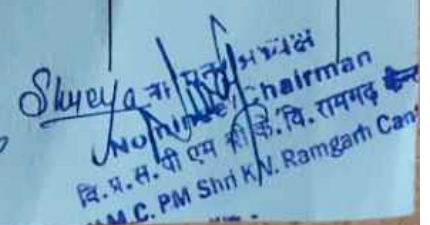 Shreya
नामित अध्यक्ष
Nominee Chairman
वि.प्र.स. पी एम श्री के. वि. रामगढ़ कैन्ट
V.M.C. PM Shri K.V. Ramgarh Can